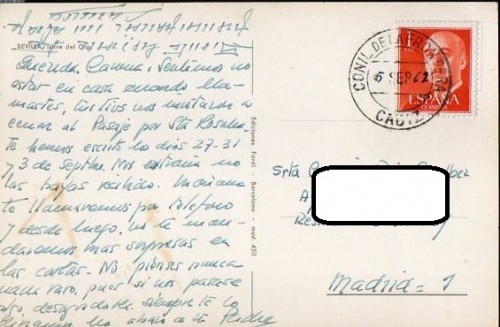 SEVILLA. Torre del Oro
Querida Carmen, Sentimos no
estar en casa cuando lla-
maste, tus tíos nos invitaron a
cenar al Pasaje por Sta Rosalia,
te hemos escrito los días 27-31
y 3 de Septbre. Nos extraña no
las hayas recibido. Mañana
te llamaremos por teléfono
y desde luego, no te man-
daremos mas sorpresas en
las cartas. No pienses nunca
nada raro, pues si nos pasase
algo desagradable siempre te lo
Ediciones - Barcelona - mod. 450
CONIL DE LA FRONTERA
6 SEP 62
CADIZ
ESPAÑA
CORREOS
Srta
Madrid - 1